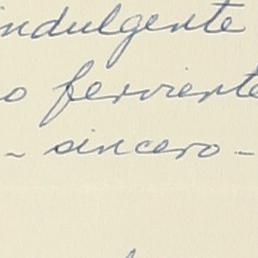 indulgente
o ferviente
- sincero -